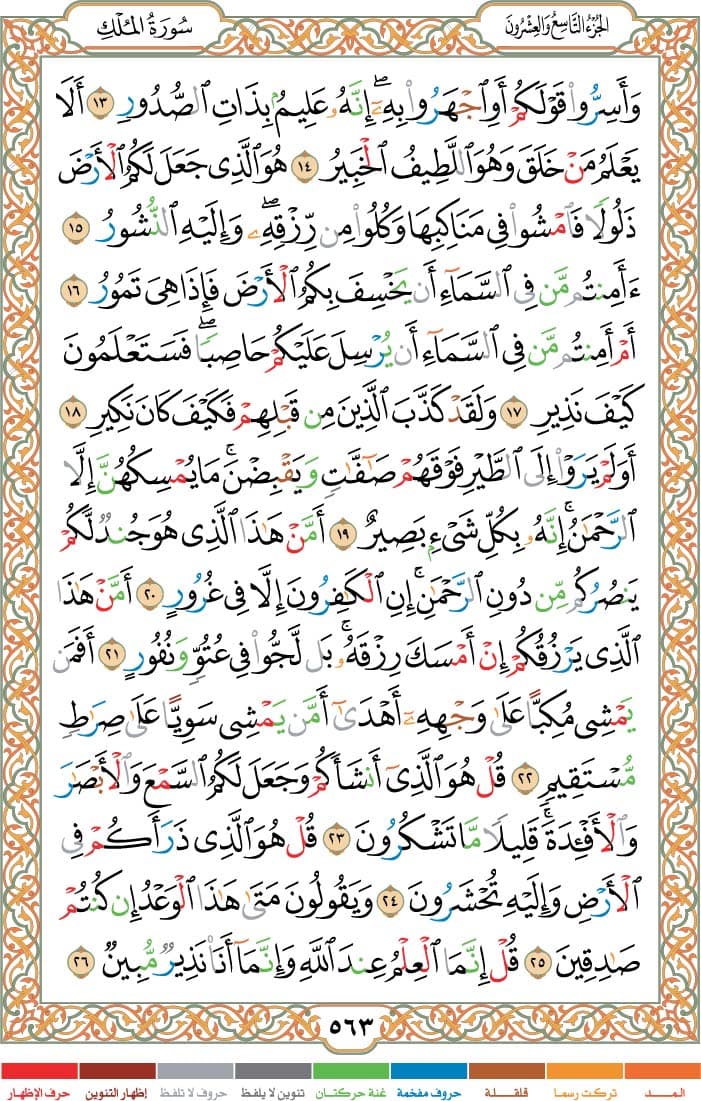 الجُزْءُ التَّاسِعُ وَالعِشْرُونَ
سُورَةُ المُلْكِ
وَأَسِرُّوا۟ قَوْلَكُمْ أَوِ ٱجْهَرُوا۟ بِهِۦٓ ۖ إِنَّهُۥ عَلِيمٌۢ بِذَاتِ ٱلصُّدُورِ ١٣ أَلَا
يَعْلَمُ مَنْ خَلَقَ وَهُوَ ٱللَّطِيفُ ٱلْخَبِيرُ ١٤ هُوَ ٱلَّذِى جَعَلَ لَكُمُ ٱلْأَرْضَ
ذَلُولًا فَٱمْشُوا۟ فِى مَنَاكِبِهَا وَكُلُوا۟ مِن رِّزْقِهِۦ ۖ وَإِلَيْهِ ٱلنُّشُورُ ١٥
ءَأَمِنتُم مَّن فِى ٱلسَّمَآءِ أَن يَخْسِفَ بِكُمُ ٱلْأَرْضَ فَإِذَا هِىَ تَمُورُ ١٦
أَمْ أَمِنتُم مَّن فِى ٱلسَّمَآءِ أَن يُرْسِلَ عَلَيْكُمْ حَاصِبًا ۖ فَسَتَعْلَمُونَ
كَيْفَ نَذِيرِ ١٧ وَلَقَدْ كَذَّبَ ٱلَّذِينَ مِن قَبْلِهِمْ فَكَيْفَ كَانَ نَكِيرِ ١٨
أَوَلَمْ يَرَوْا۟ إِلَى ٱلطَّيْرِ فَوْقَهُمْ صَٰٓفَّٰتٍ وَيَقْبِضْنَ ۚ مَا يُمْسِكُهُنَّ إِلَّا
ٱلرَّحْمَٰنُ ۚ إِنَّهُۥ بِكُلِّ شَىْءٍۭ بَصِيرٌ ١٩ أَمَّنْ هَٰذَا ٱلَّذِى هُوَ جُندٌ لَّكُمْ
يَنصُرُكُم مِّن دُونِ ٱلرَّحْمَٰنِ ۚ إِنِ ٱلْكَٰفِرُونَ إِلَّا فِى غُرُورٍ ٢٠ أَمَّنْ هَٰذَا
ٱلَّذِى يَرْزُقُكُمْ إِنْ أَمْسَكَ رِزْقَهُۥ ۚ بَل لَّجُّوا۟ فِى عُتُوٍّ وَنُفُورٍ ٢١ أَفَمَن
يَمْشِى مُكِبًّا عَلَىٰ وَجْهِهِۦٓ أَهْدَىٰٓ أَمَّن يَمْشِى سَوِيًّا عَلَىٰ صِرَٰطٍ
مُّسْتَقِيمٍ ٢٢ قُلْ هُوَ ٱلَّذِىٓ أَنشَأَكُمْ وَجَعَلَ لَكُمُ ٱلسَّمْعَ وَٱلْأَبْصَٰرَ
وَٱلْأَفْـِٔدَةَ ۖ قَلِيلًا مَّا تَشْكُرُونَ ٢٣ قُلْ هُوَ ٱلَّذِى ذَرَأَكُمْ فِى
ٱلْأَرْضِ وَإِلَيْهِ تُحْشَرُونَ ٢٤ وَيَقُولُونَ مَتَىٰ هَٰذَا ٱلْوَعْدُ إِن كُنتُمْ
صَٰدِقِينَ ٢٥ قُلْ إِنَّمَا ٱلْعِلْمُ عِندَ ٱللَّهِ وَإِنَّمَآ أَنَا۠ نَذِيرٌ مُّبِينٌ ٢٦
٥٦٣
المــــد تركت رسما قلقـــلة حروف مفخمة غنة حركتـان تنوين لا يلفظ حروف لا تلفظ إظهار التنوين حرف الإظهار